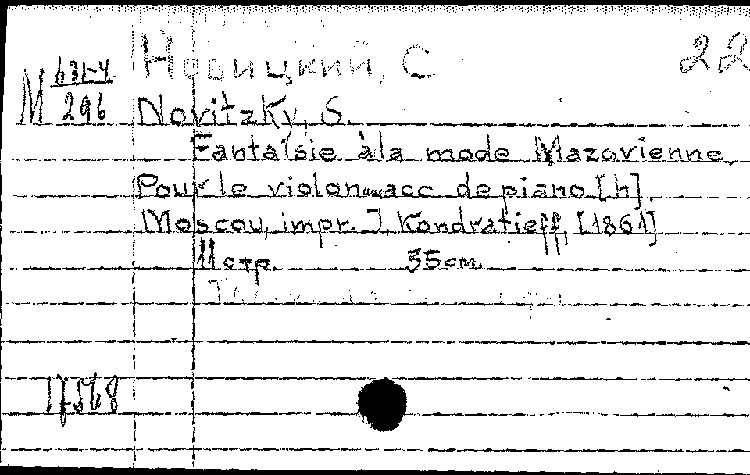 Новицкий, С
22
М 631-4/296
Novitzky, S.
Fantaisie à la mode Mazovienne.
Pour le violon acc. de piano [h].
Moscou, impr. J. Kondratieff, [1861]
11 стр. 35 см.
17568